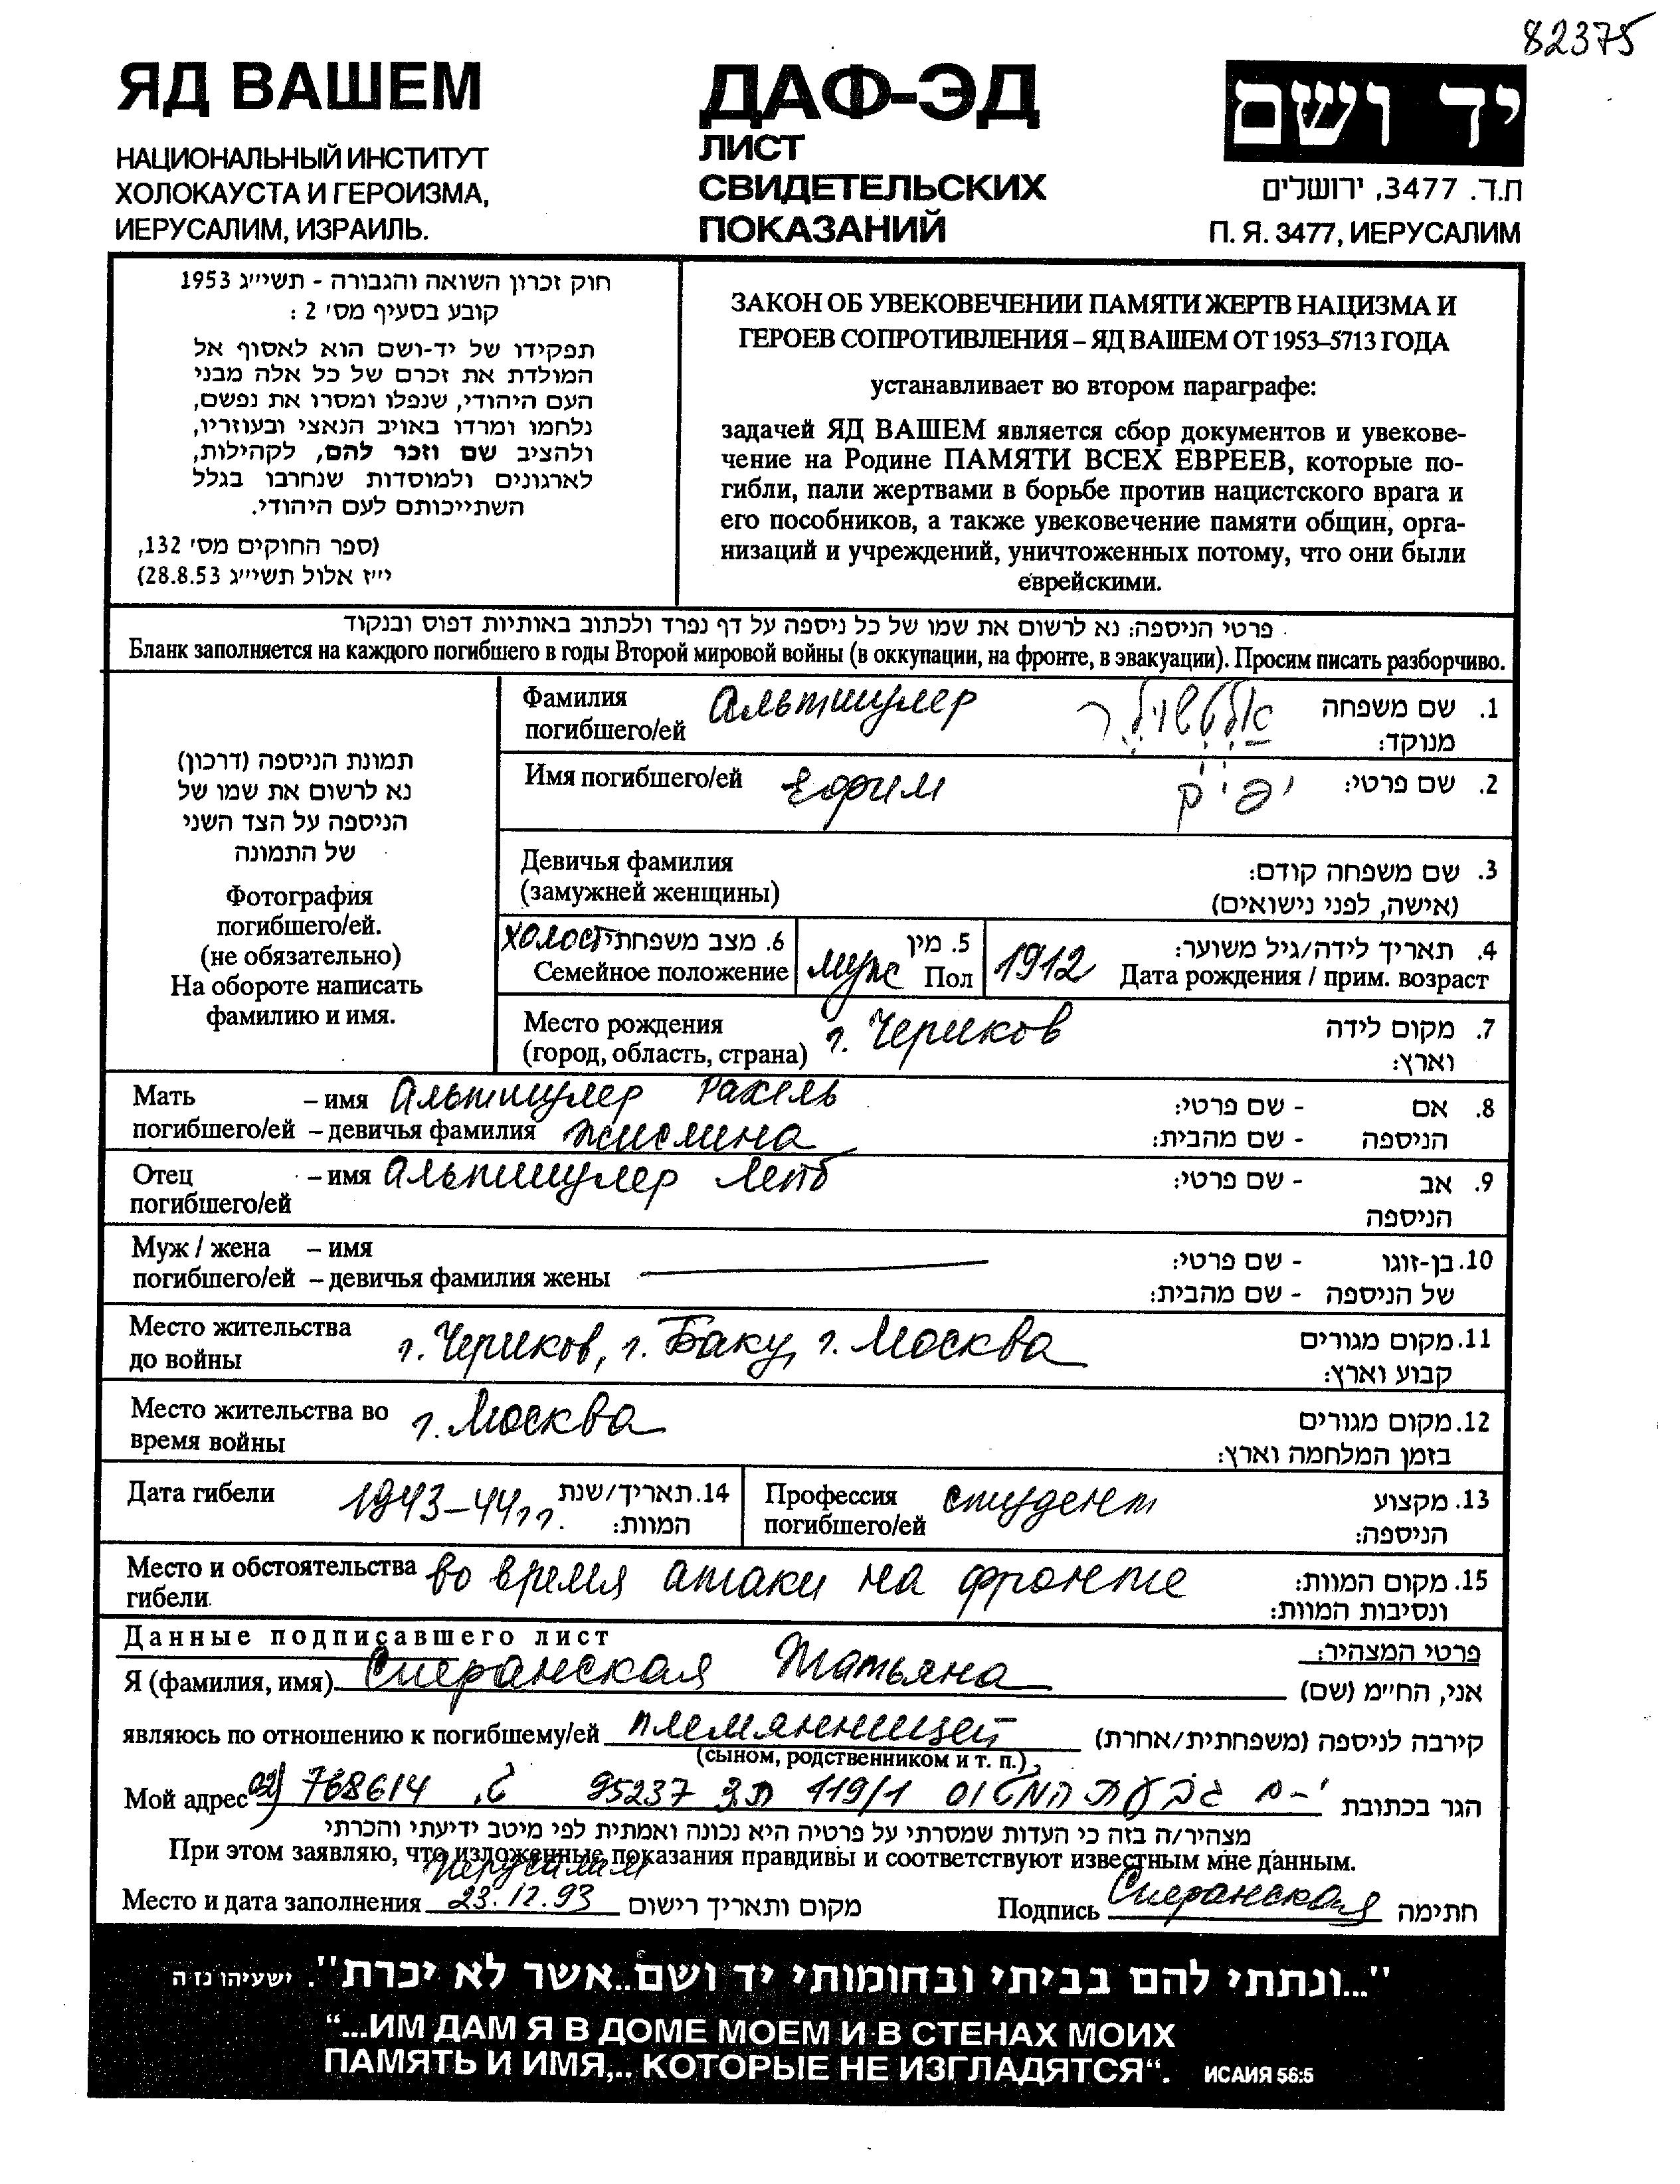 82375
ЯД ВАШЕМ
НАЦИОНАЛЬНЫЙ ИНСТИТУТ
ХОЛОКАУСТА И ГЕРОИЗМА,
ИЕРУСАЛИМ, ИЗРАИЛЬ.
ДАФ-ЭД
ЛИСТ
СВИДЕТЕЛЬСКИХ
ПОКАЗАНИЙ
יד ושם
ת.ד. 3477, ירושלים
П. Я. 3477, ИЕРУСАЛИМ
חוק זכרון השואה והגבורה - תשי״ג 1953
קובע בסעיף מס׳ 2 :
תפקידו של יד-ושם הוא לאסוף אל
המולדת את זכרם של כל אלה מבני
העם היהודי, שנפלו ומסרו את נפשם,
נלחמו ומרדו באויב הנאצי ובעוזריו,
ולהציב שם וזכר להם, לקהילות,
לארגונים ולמוסדות שנחרבו בגלל
השתייכותם לעם היהודי.
(ספר החוקים מס׳ 132,
י״ז אלול תשי״ג 28.8.53)
ЗАКОН ОБ УВЕКОВЕЧЕНИИ ПАМЯТИ ЖЕРТВ НАЦИЗМА И
ГЕРОЕВ СОПРОТИВЛЕНИЯ – ЯД ВАШЕМ ОТ 1953–5713 ГОДА
устанавливает во втором параграфе:
задачей ЯД ВАШЕМ является сбор документов и увекове-
чение на Родине ПАМЯТИ ВСЕХ ЕВРЕЕВ, которые по-
гибли, пали жертвами в борьбе против нацистского врага и
его пособников, а также увековечение памяти общин, орга-
низаций и учреждений, уничтоженных потому, что они были
еврейскими.
פרטי הניספה: נא לרשום את שמו של כל ניספה על דף נפרד ולכתוב באותיות דפוס ובנקוד
Бланк заполняется на каждого погибшего в годы Второй мировой войны (в оккупации, на фронте, в эвакуации). Просим писать разборчиво.
תמונת הניספה (דרכון)
נא לרשום את שמו של
הניספה על הצד השני
של התמונה
Фотография
погибшего/ей.
(не обязательно)
На обороте написать
фамилию и имя.
Фамилия Альтшулер אלטשולר 1. שם משפחה
погибшего/ей מנוקד:
Имя погибшего/ей Ефим יפים 2. שם פרטי:
Девичья фамилия 3. שם משפחה קודם:
(замужней женщины) (אישה, לפני נישואים)
холост 6. מצב משפחתי 5. מין 4. תאריך לידה/גיל משוער:
Семейное положение муж Пол 1912 Дата рождения / прим. возраст
Место рождения г. Чериков 7. מקום לידה
(город, область, страна) וארץ:
Мать – имя Альтшулер Рахель 8. אם - שם פרטי:
погибшего/ей – девичья фамилия Жислина הניספה - שם מהבית:
Отец – имя Альтшулер Лейб 9. אב - שם פרטי:
погибшего/ей הניספה
Муж / жена – имя 10. בן-זוגו - שם פרטי:
погибшего/ей – девичья фамилия жены של הניספה - שם מהבית:
Место жительства г. Чериков, г. Баку, г. Москва 11. מקום מגורים
до войны קבוע וארץ:
Место жительства во г. Москва 12. מקום מגורים
время войны בזמן המלחמה וארץ:
Дата гибели 1943–44 гг. 14. תאריך/שנת המוות:
Профессия студент 13. מקצוע
погибшего/ей הניספה:
Место и обстоятельства во время атаки на фронте 15. מקום המוות:
гибели ונסיבות המוות:
Данные подписавшего лист פרטי המצהיר:
Я (фамилия, имя) Сперанская Татьяна אני, הח״מ (שם)
являюсь по отношению к погибшему/ей племянницей קירבה לניספה (משפחתית/אחרת)
(сыном, родственником и т. п.)
Мой адрес 02) 768614 .ט 95237 ת.ד 119/1 גבעת המטוס י-ם הגר בכתובת
מצהיר/ה בזה כי העדות שמסרתי על פרטיה היא נכונה ואמתית לפי מיטב ידיעתי והכרתי
При этом заявляю, что изложенные показания правдивы и соответствуют известным мне данным.
Иерусалим
Место и дата заполнения 23.12.93 מקום ותאריך רישום Подпись Сперанская חתימה
"...ונתתי להם בביתי ובחומותי יד ושם...אשר לא יכרת". ישעיהו נז ה
“...ИМ ДАМ Я В ДОМЕ МОЕМ И В СТЕНАХ МОИХ
ПАМЯТЬ И ИМЯ,.. КОТОРЫЕ НЕ ИЗГЛАДЯТСЯ“. ИСАИЯ 56:5